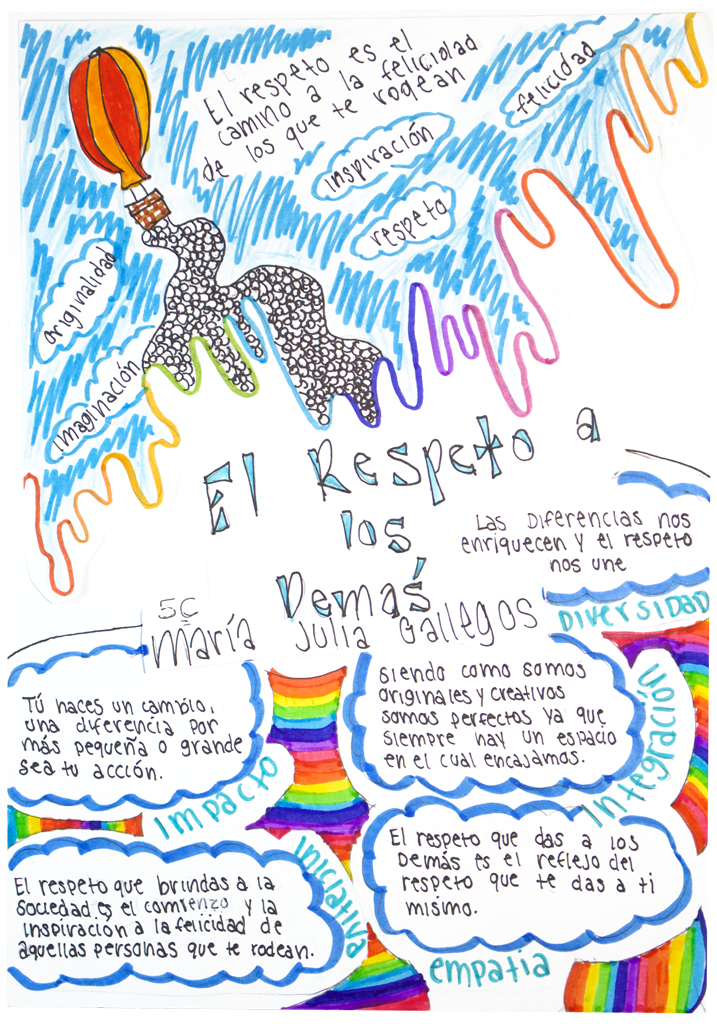 El respeto es el
camino a la felicidad
de los que te rodean
felicidad
inspiración
respeto
originalidad
imaginación
El Respeto a
los
Demás
5C
María Julia Gallegos
Las Diferencias nos
enriquecen y el respeto
nos une
Diversidad
Tú haces un cambio,
una diferencia por
más pequeña o grande
sea tu accción.
Impacto
Siendo como somos
originales y creativos
somos perfectos ya que
siempre hay un espacio
en el cual encajamos.
Integración
El respeto que brindas a la
sociedad es el comienzo y la
inspiración a la felicidad de
aquellas personas que te rodean.
Iniciativa
El respeto que das a los
Demás es el reflejo del
respeto que te das a ti
mismo.
empatia